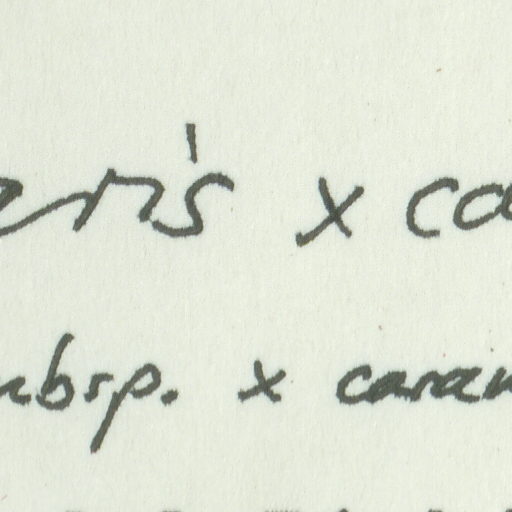 eris x ca
ubsp. x caran